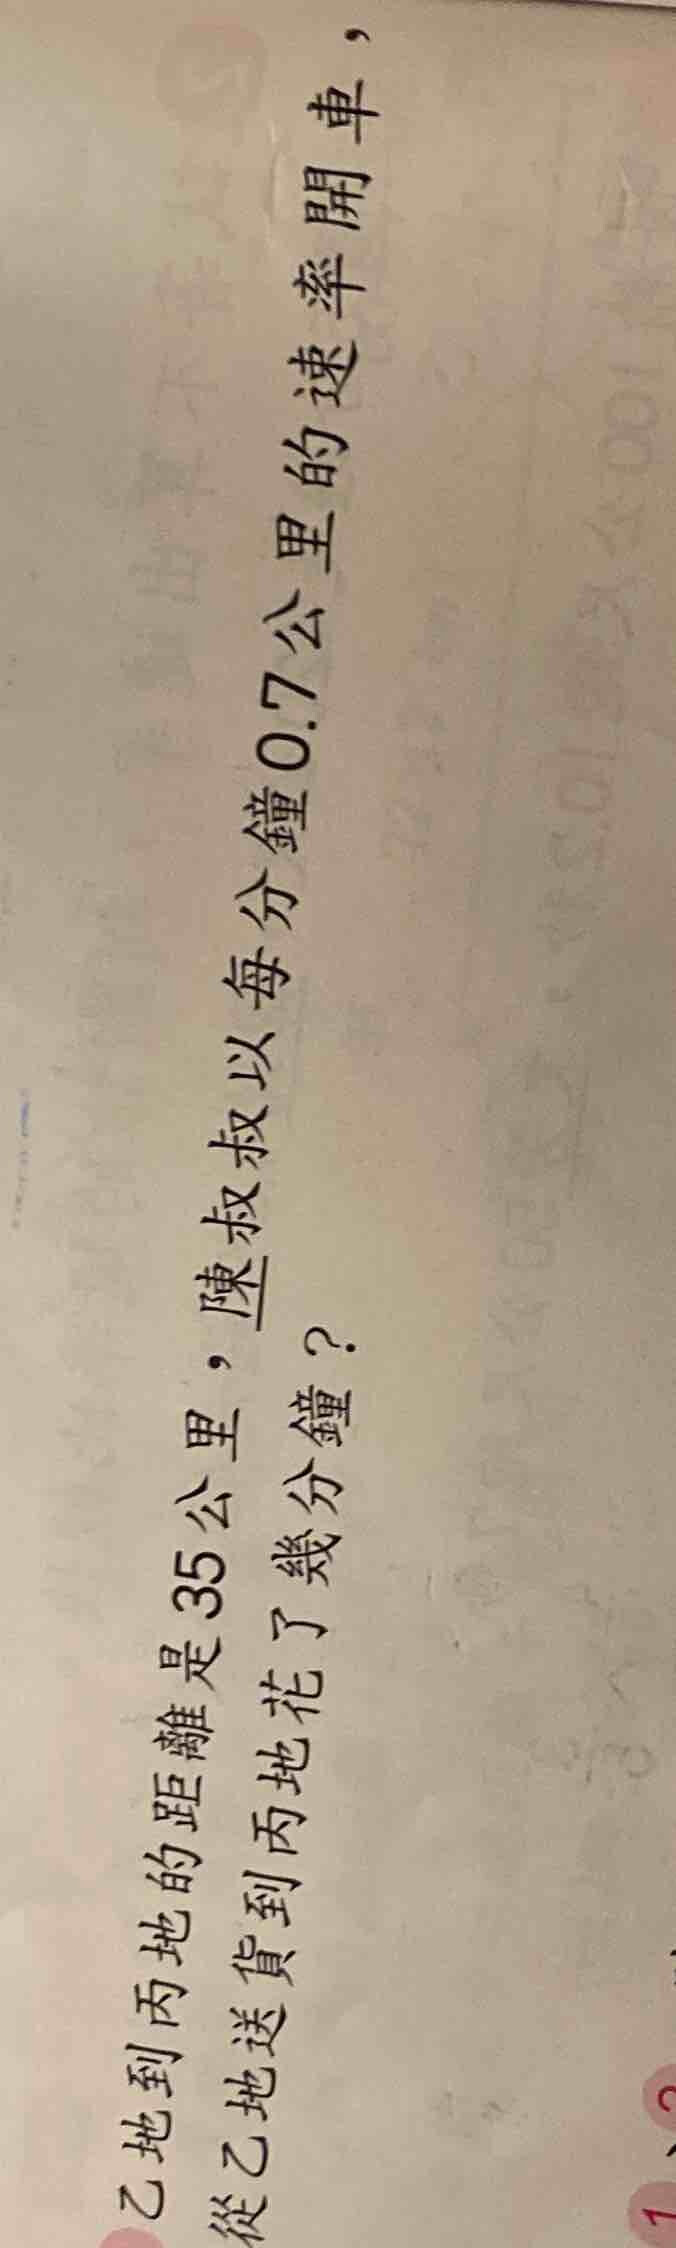 乙地到丙地的距離是35公里，陳叔叔以每分鐘0.7公里的速率開車，
從乙地送貨到丙地花了幾分鐘？